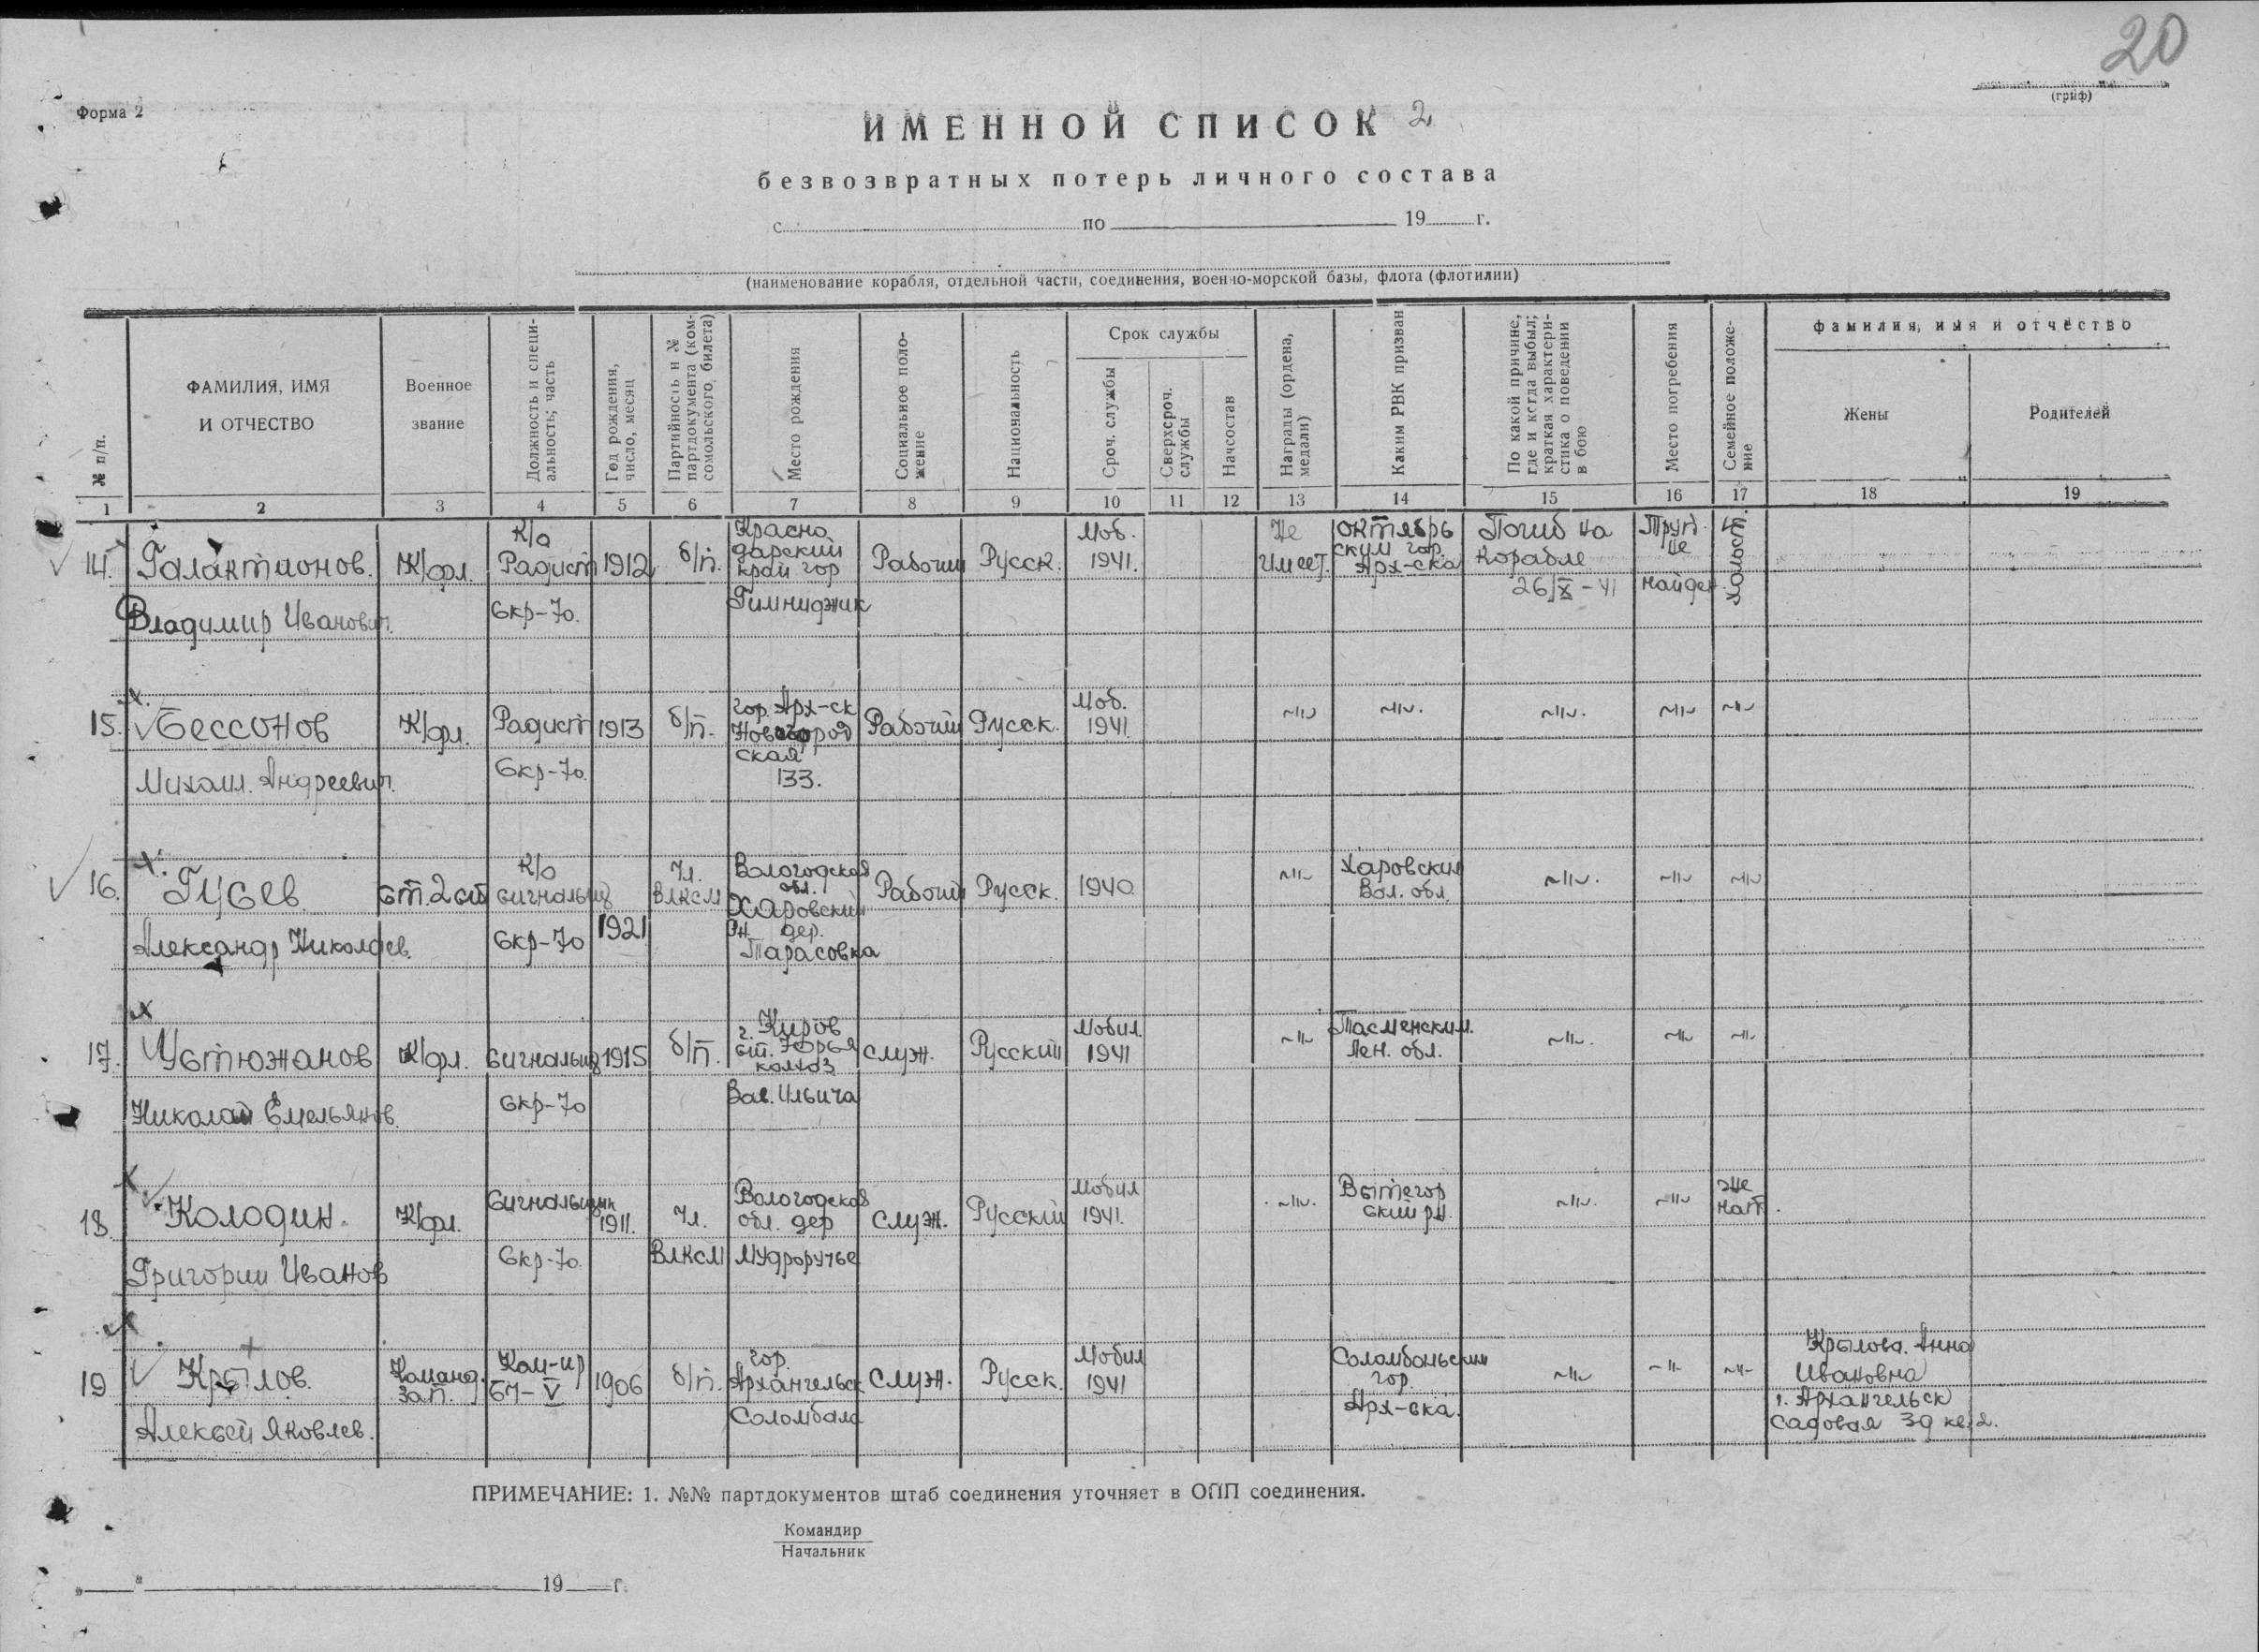 20
(гриф)
Форма 2
ИМЕННОЙ СПИСОК 2
безвозвратных потерь личного состава
с по 19 г.
(наименование корабля, отдельной части, соединения, военно-морской базы, флота (флотилии)
№ п/п.
ФАМИЛИЯ, ИМЯ
И ОТЧЕСТВО
Военное
звание
Должность и специ-
альность; часть
Год рождения,
число, месяц
Партийность и №
партдокумента (ком-
сомольского билета)
Место рождения
Социальное поло-
жение
Национальность
Срок службы
Сроч. службы
Сверхсроч.
службы
Начсостав
Награды (ордена,
медали)
Каким РВК призван
По какой причине,
где и когда выбыл;
краткая характери-
стика о поведении
в бою
Место погребения
Семейное положе-
ние
фамилия, имя и отчество
Жены
Родителей
1 2 3 4 5 6 7 8 9 10 11 12 13 14 15 16 17 18 19
14. Галактионов.
Владимир Иванович.
К/фл.
К/о
Радист
скр-70.
1912
б/п.
Красно
дарский
край гор
Гимниджик
Рабочий
Русск.
Моб.
1941.
Не
имеет.
Октябрь
ским гор.
Арх-ска
Погиб на
корабле
26/X-41
Труп
не
найден
Холост.
15. Бессонов
Михаил. Андреевич.
К/фл.
Радист
скр-70.
1913
б/п.
гор. Арх-ск
Новгород
ская
133.
Рабочий
Русск.
Моб.
1941.
~"~ ~"~. ~"~. ~"~ ~"~
16. Гусев.
Александр Николаев.
ст.2 ст
К/о
сигнальщ
скр-70
1921
Чл.
ВЛКСМ
Вологодская
обл.
Харовский
рн дер.
Тарасовка
Рабочий
Русск.
1940
~"~
Харовским
Вол. обл.
~"~. ~"~ ~"~
17. Устюжанов
Николай Емельянов.
К/фл.
сигнальщ
скр-70
1915
б/п.
г. Киров
ст. Юрья
колхоз
Зав. Ильича
служ.
Русский
Мобил.
1941
~"~
Тасменским.
Лен. обл.
~"~. ~"~ ~"~
18. Колодин.
Григории Иванов
К/фл.
сигнальщик
скр-70.
1911.
Чл.
ВЛКСМ
Вологодская
обл. дер
Мудроручье
служ.
Русский
Мобил
1941.
~"~.
Вытегор
ский рн.
~"~. ~"~
Же
нат.
19 Крылов.
Алексей Яковлев.
Команд.
зап.
Ком-ир
БЧ-V
1906
б/п.
гор.
Архангельск
Соломбала
служ.
Русск.
Мобил
1941
Соломбольским
гор.
Арх-ска.
~"~ ~"~ ~"~
Крылова. Анна
Ивановна
г. Архангельск
Садовая 39 кв 2.
ПРИМЕЧАНИЕ: 1. №№ партдокументов штаб соединения уточняет в ОПП соединения.
Командир
Начальник
„ “ 19 г.